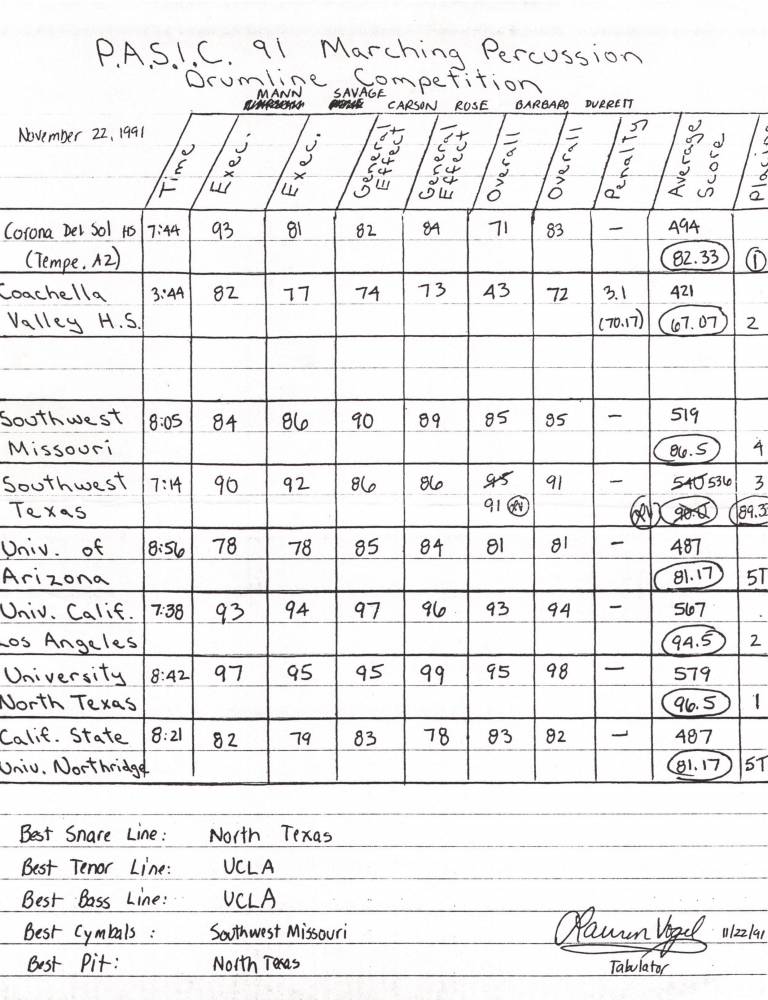 P.A.S.I.C. 91 Marching Percussion
Drumline Competition
MANN SAVAGE CARSON ROSE BARBARO DURRETT
November 22, 1991 Time Exec. Exec. General Effect General Effect Overall Overall Penalty Average Score Placing
Corona Del Sol HS 7:44 93 81 82 84 71 83 — 494
(Tempe, AZ) 82.33 1
Coachella 3:44 82 77 74 73 43 72 3.1 421
Valley H.S. (70.17) 67.07 2
Southwest 8:05 84 86 90 89 85 85 — 519
Missouri 86.5 4
Southwest 7:14 90 92 86 86 95 91 — 540 536 3
Texas 91 LV LV 90.0 89.3
Univ. of 8:56 78 78 85 84 81 81 — 487
Arizona 81.17 5T
Univ. Calif. 7:38 93 94 97 96 93 94 — 567
Los Angeles 94.5 2
University 8:42 97 95 95 99 95 98 — 579
North Texas 96.5 1
Calif. State 8:21 82 79 83 78 83 82 — 487
Univ. Northridge 81.17 5T
Best Snare Line: North Texas
Best Tenor Line: UCLA
Best Bass Line: UCLA
Best Cymbals : Southwest Missouri
Best Pit: North Texas
Lauren Vogel 11/22/91
Tabulator